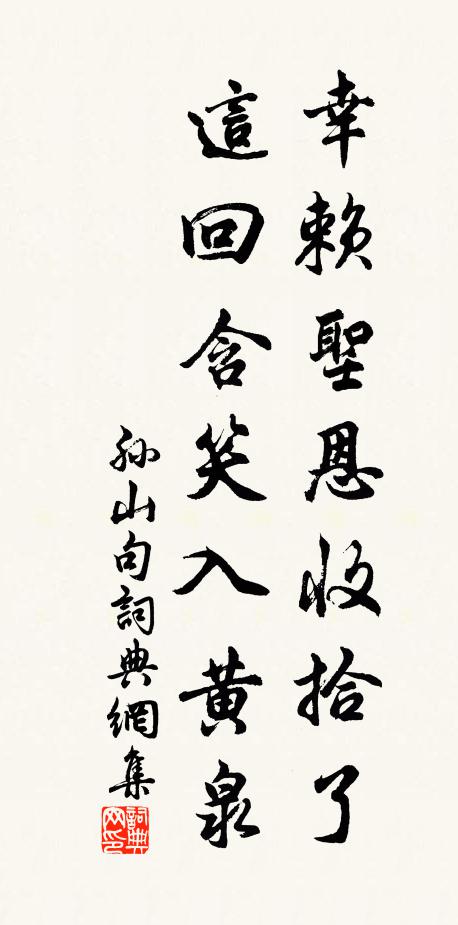 幸賴聖恩收拾了
這回含笑入黃泉
孫山句詞典網集
詞典网印